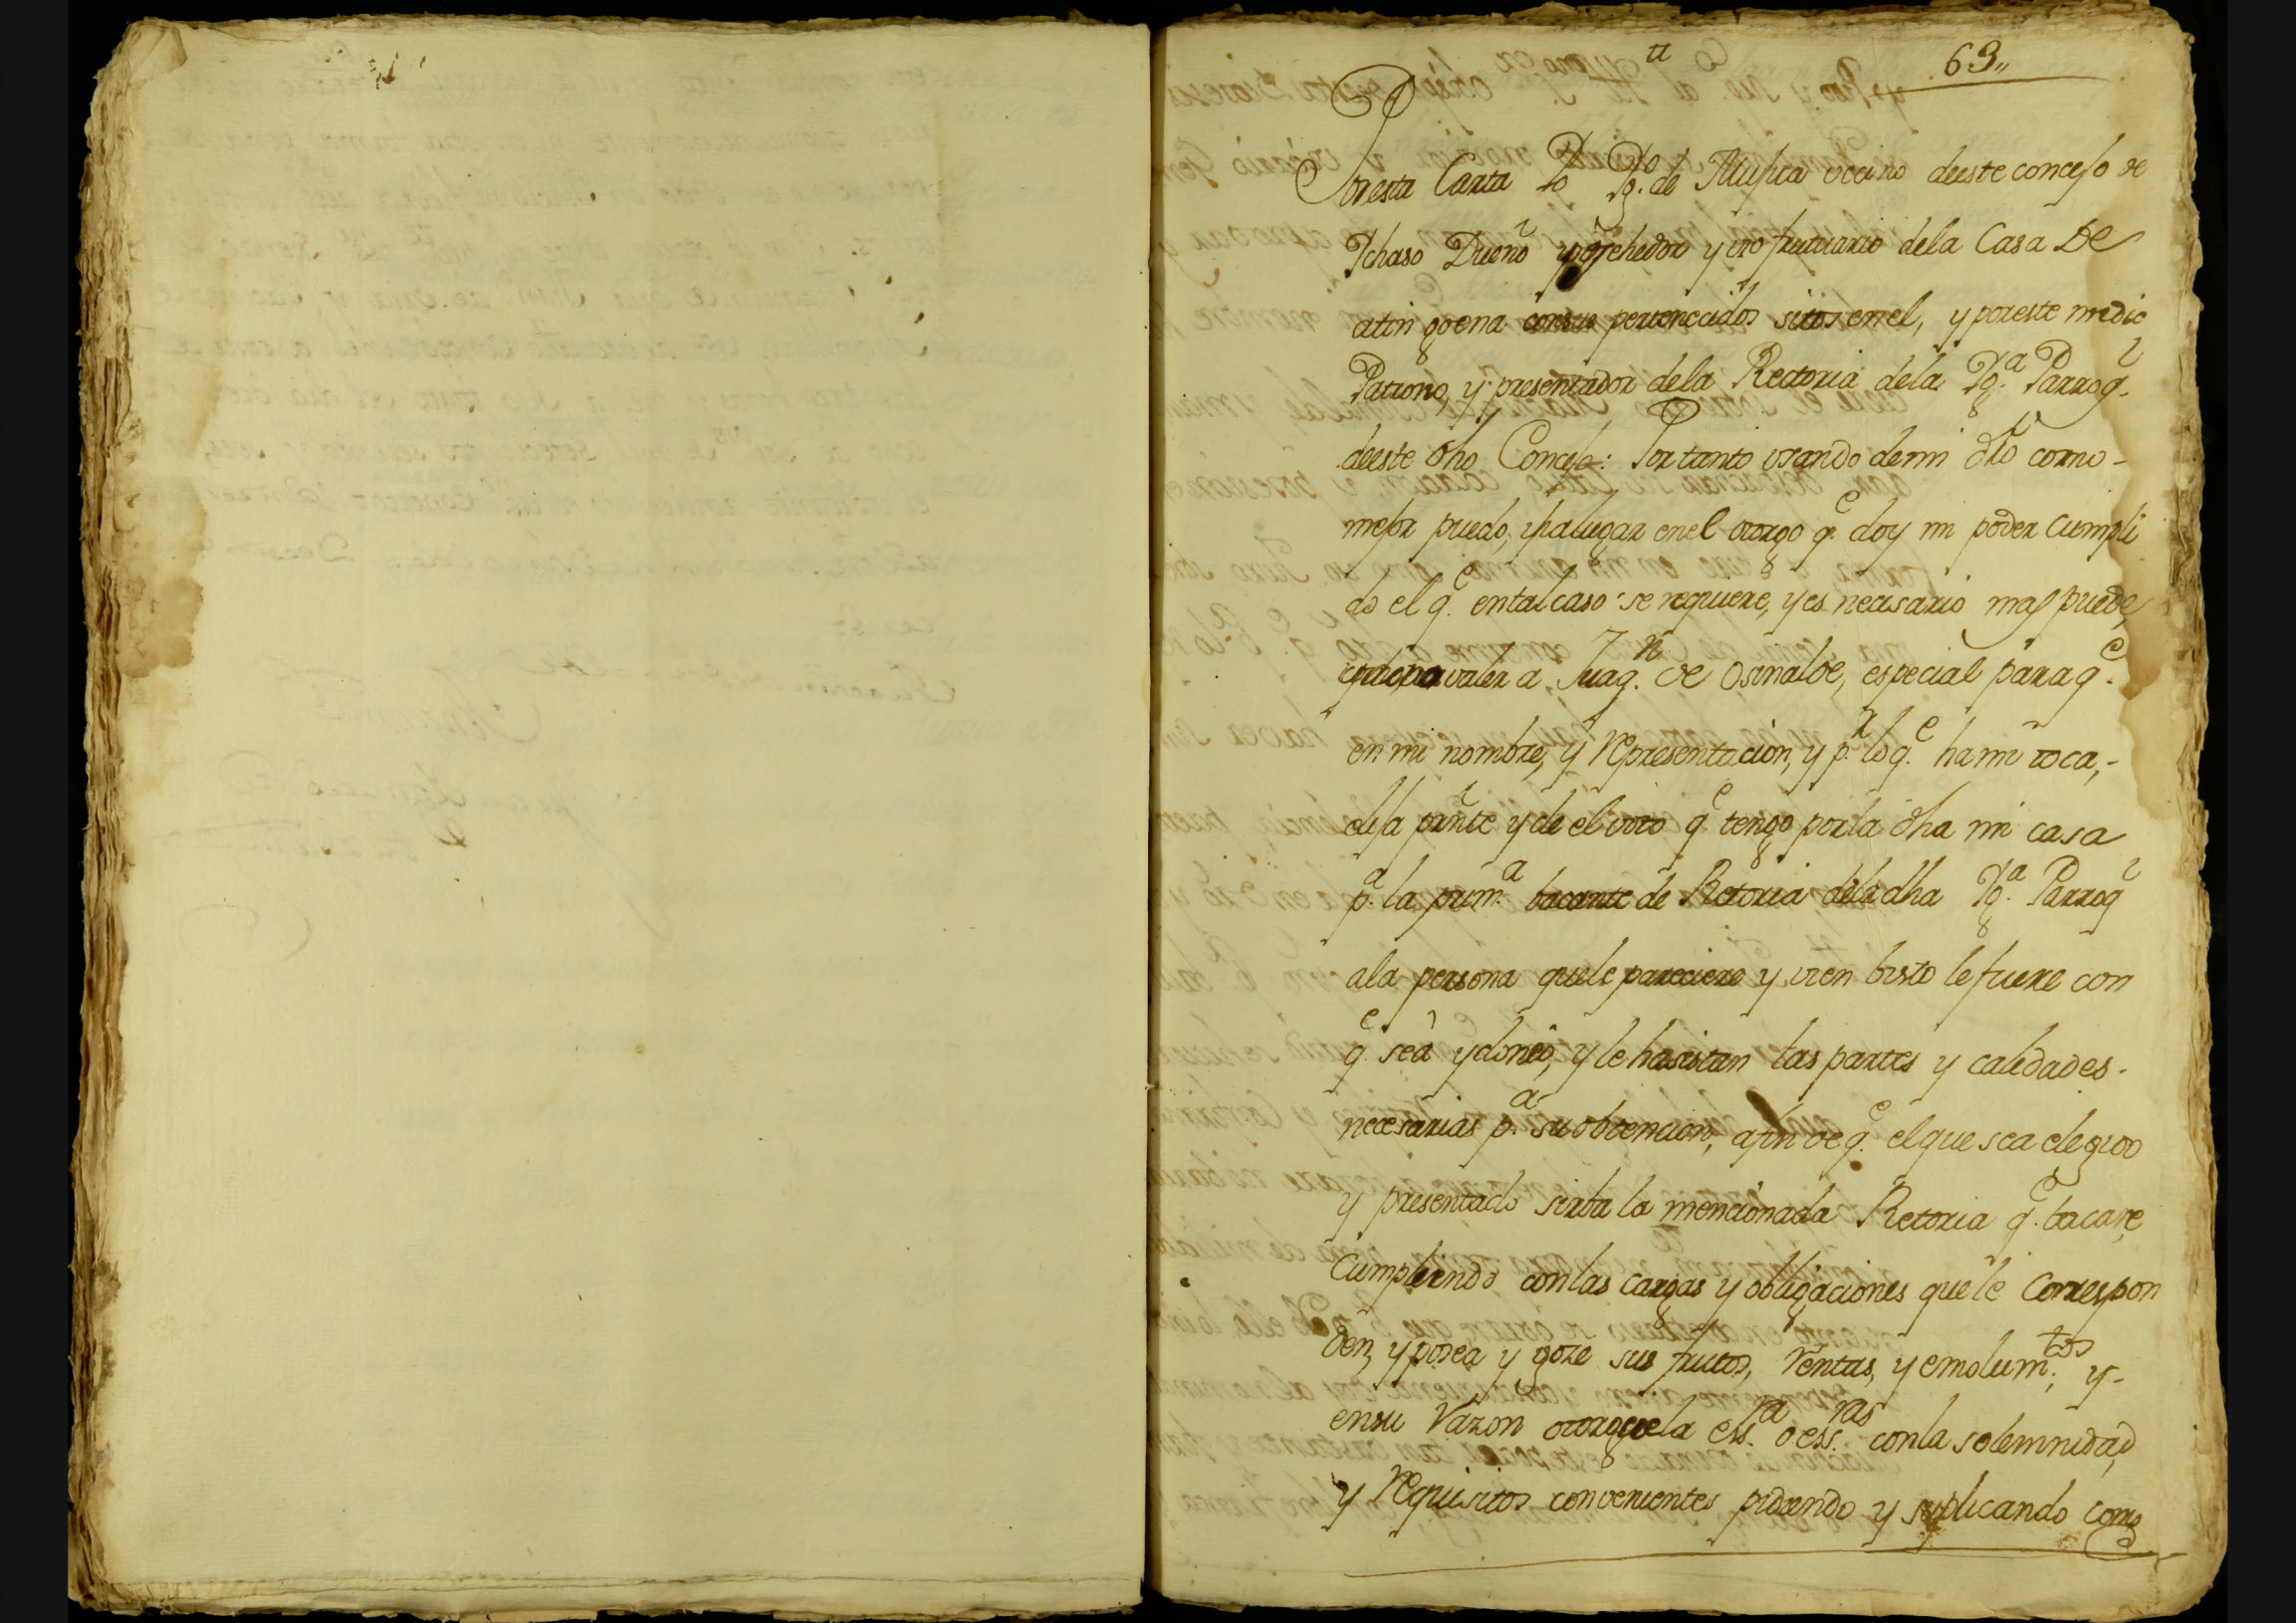 63,,
Por esta Carta Yo Ygº. de Mujica vecino de este concejo de
Ychaso Dueño posehedor y uso frutuario dela Casa De
atin goena con sus pertenecidos sitos en el, y por este medio
Patrono, y presentador dela Rectoria dela Yg.ª Parroq.l
de este dho Concejo: Por tanto usando de mi dro como-
mejor puedo, y ha lugar en el otorgo q.e doy mi poder cumpli
do el q.e en tal caso se requiere, y es necesario mas puede,
valer a Juaq.n de Osinalde, especial para q.e
en mi nombre, y representacion, y p.r lo q.e ha mi toca,-
elija pr̃nte y de el voto q.e tengo por la dha mi casa
p.a la prim.a bacante de Retoria de la dha Yg.a Parroq.l
ala persona que le pareciere y vien bisto le fuere con
q.e sea ydoneo, y le hasistan las partes y calidades-
necesarias p.a su obtencion, a fin de q.e el que sea elegido
y presentado sirba la mencionada Retoria q.e bacare,
Cumpliendo con las cargas y obligaciones que le Correspon
den, y posea y goze sus frutos, Rentas, y emolum.tos; y-
en su Razon otorgue la ess.ra o ess.ras con la solemnidad,
y requisitos convenientes pidiendo y suplicando como